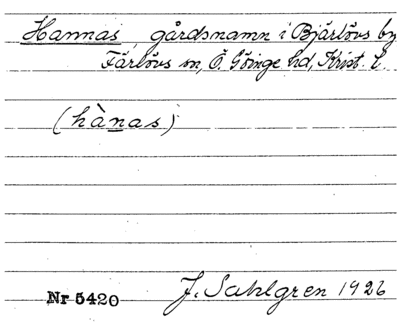 Hannas, gårdsnamn i Bjärlövs by
Färlövs sn, Ö. Göinge hd, Krist. l.
(hànas)
Nr 5420 J. Sahlgren 1926